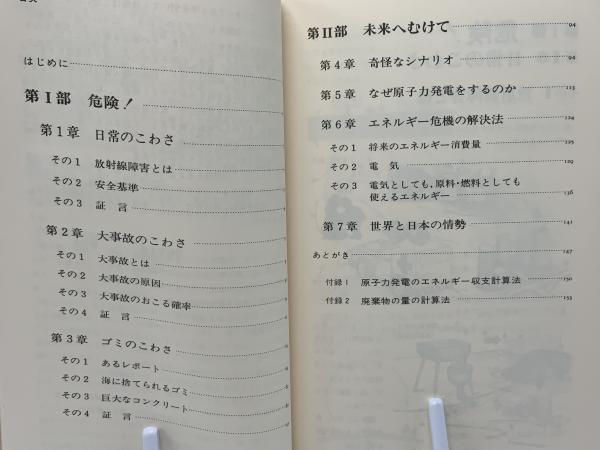 はじめに
第Ⅰ部 危険！
第1章 日常のこわさ
その1 放射線障害とは
その2 安全基準
その3 証言
第2章 大事故のこわさ
その1 大事故とは
その2 大事故の原因
その3 大事故のおこる確率
その4 証言
第3章 ゴミのこわさ
その1 あるレポート
その2 海に捨てられるゴミ
その3 巨大なコンクリート
その4 証言
第Ⅱ部 未来へむけて 94
第4章 奇怪なシナリオ 94
第5章 なぜ原子力発電をするのか 113
第6章 エネルギー危機の解決法 124
その1 将来のエネルギー消費量 125
その2 電気 129
その3 電気としても，原料・燃料としても
使えるエネルギー 136
第7章 世界と日本の情勢 141
あとがき 147
付録1 原子力発電のエネルギー収支計算法 150
付録2 廃棄物の量の計算法 152